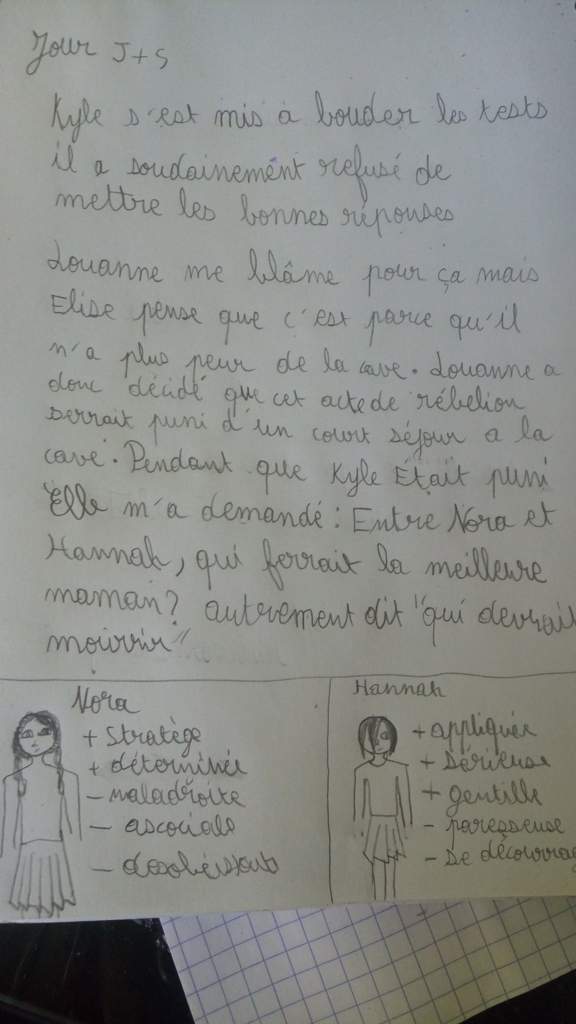 Jour J+5
Kyle s'est mis à bouder les tests
il a soudainement refusé de
mettre les bonnes réponses
Louanne me blâme pour ça mais
Elise pense que c'est parce qu'il
n'a plus peur de la cave. Louanne a
donc décidé que cet acte de rébelion
serrait puni d'un court séjour a la
cave. Pendant que Kyle Était puni
Elle m'a demandé : Entre Nora et
Hannah, qui ferrait la meilleure
maman? autrement dit "qui devrait
mourrir"
Nora
+ Stratège
+ déterminée
- maladroite
- asociale
- desobéissante
Hannah
+ appliquée
+ sérieuse
+ gentille
- paresseuse
- se décourag